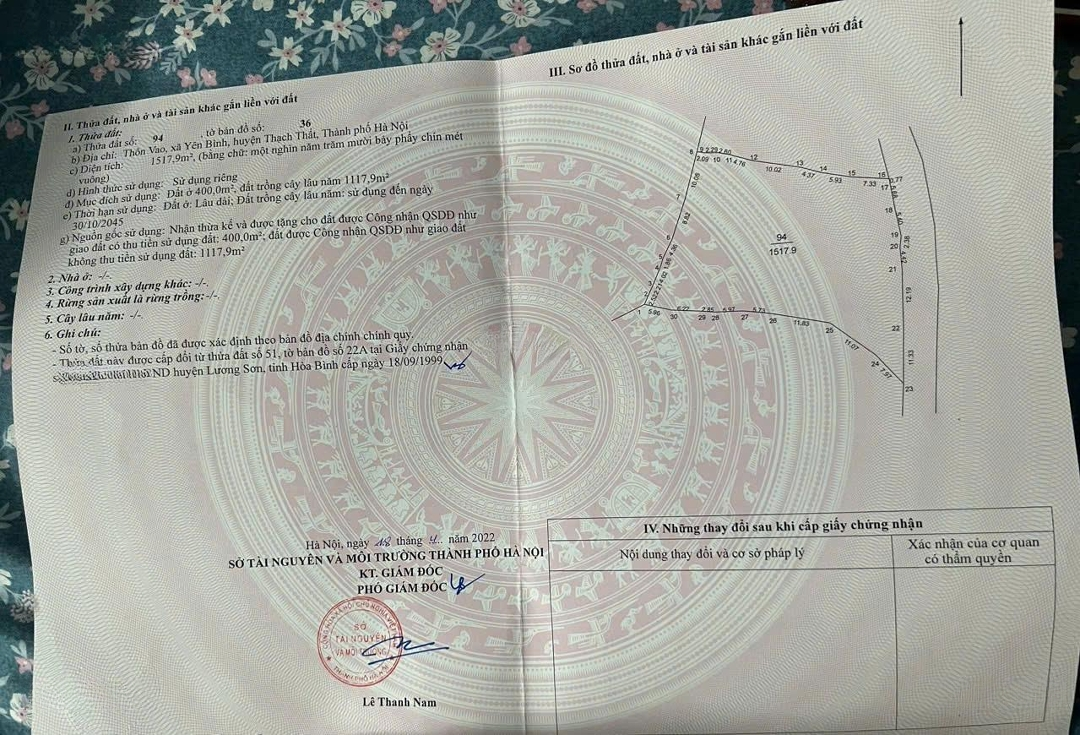 II. Thửa đất, nhà ở và tài sản khác gắn liền với đất
1. Thửa đất:
a) Thửa đất số: 94 , tờ bản đồ số: 36
b) Địa chỉ: Thôn Vao, xã Yên Bình, huyện Thạch Thất, Thành phố Hà Nội
c) Diện tích: 1517,9m², (bằng chữ: một nghìn năm trăm mười bảy phẩy chín mét
vuông)
d) Hình thức sử dụng: Sử dụng riêng
đ) Mục đích sử dụng: Đất ở 400,0m², đất trồng cây lâu năm 1117,9m²
e) Thời hạn sử dụng: Đất ở: Lâu dài; Đất trồng cây lâu năm: sử dụng đến ngày
30/10/2045
g) Nguồn gốc sử dụng: Nhận thừa kế và được tặng cho đất được Công nhận QSDĐ như
giao đất có thu tiền sử dụng đất: 400,0m²; đất được Công nhận QSDĐ như giao đất
không thu tiền sử dụng đất: 1117,9m²
2. Nhà ở: -/-.
3. Công trình xây dựng khác: -/-.
4. Rừng sản xuất là rừng trồng:-/-.
5. Cây lâu năm: -/-.
6. Ghi chú:
- Số tờ, số thửa bản đồ đã được xác định theo bản đồ địa chính chính quy.
- Thửa đất này được cấp đổi từ thửa đất số 51, tờ bản đồ số 22A tại Giấy chứng nhận
ND huyện Lương Sơn, tỉnh Hòa Bình cấp ngày 18/09/1999
Hà Nội, ngày 18 tháng 4 năm 2022
SỞ TÀI NGUYÊN VÀ MÔI TRƯỜNG THÀNH PHỐ HÀ NỘI
KT. GIÁM ĐỐC
PHÓ GIÁM ĐỐC
SỞ
TÀI NGUYÊN
VÀ MÔI TRƯỜNG
THÀNH PHỐ HÀ NỘI
Lê Thanh Nam
III. Sơ đồ thửa đất, nhà ở và tài sản khác gắn liền với đất
8 9 2.29 2.60 12 13 14 15 16
2.09 10 11 4.76 10.02 4.37 5.93 7.33 17
7 10.05
18
6.82
94
1517.9
19
20
6
5
21
12.19
1 5.96 30 6.22 29 2.85 28 6.97 27 6.73 26 11.83 25
22
11.07
11.33
24 7.97
23
IV. Những thay đổi sau khi cấp giấy chứng nhận
Nội dung thay đổi và cơ sở pháp lý
Xác nhận của cơ quan
có thẩm quyền